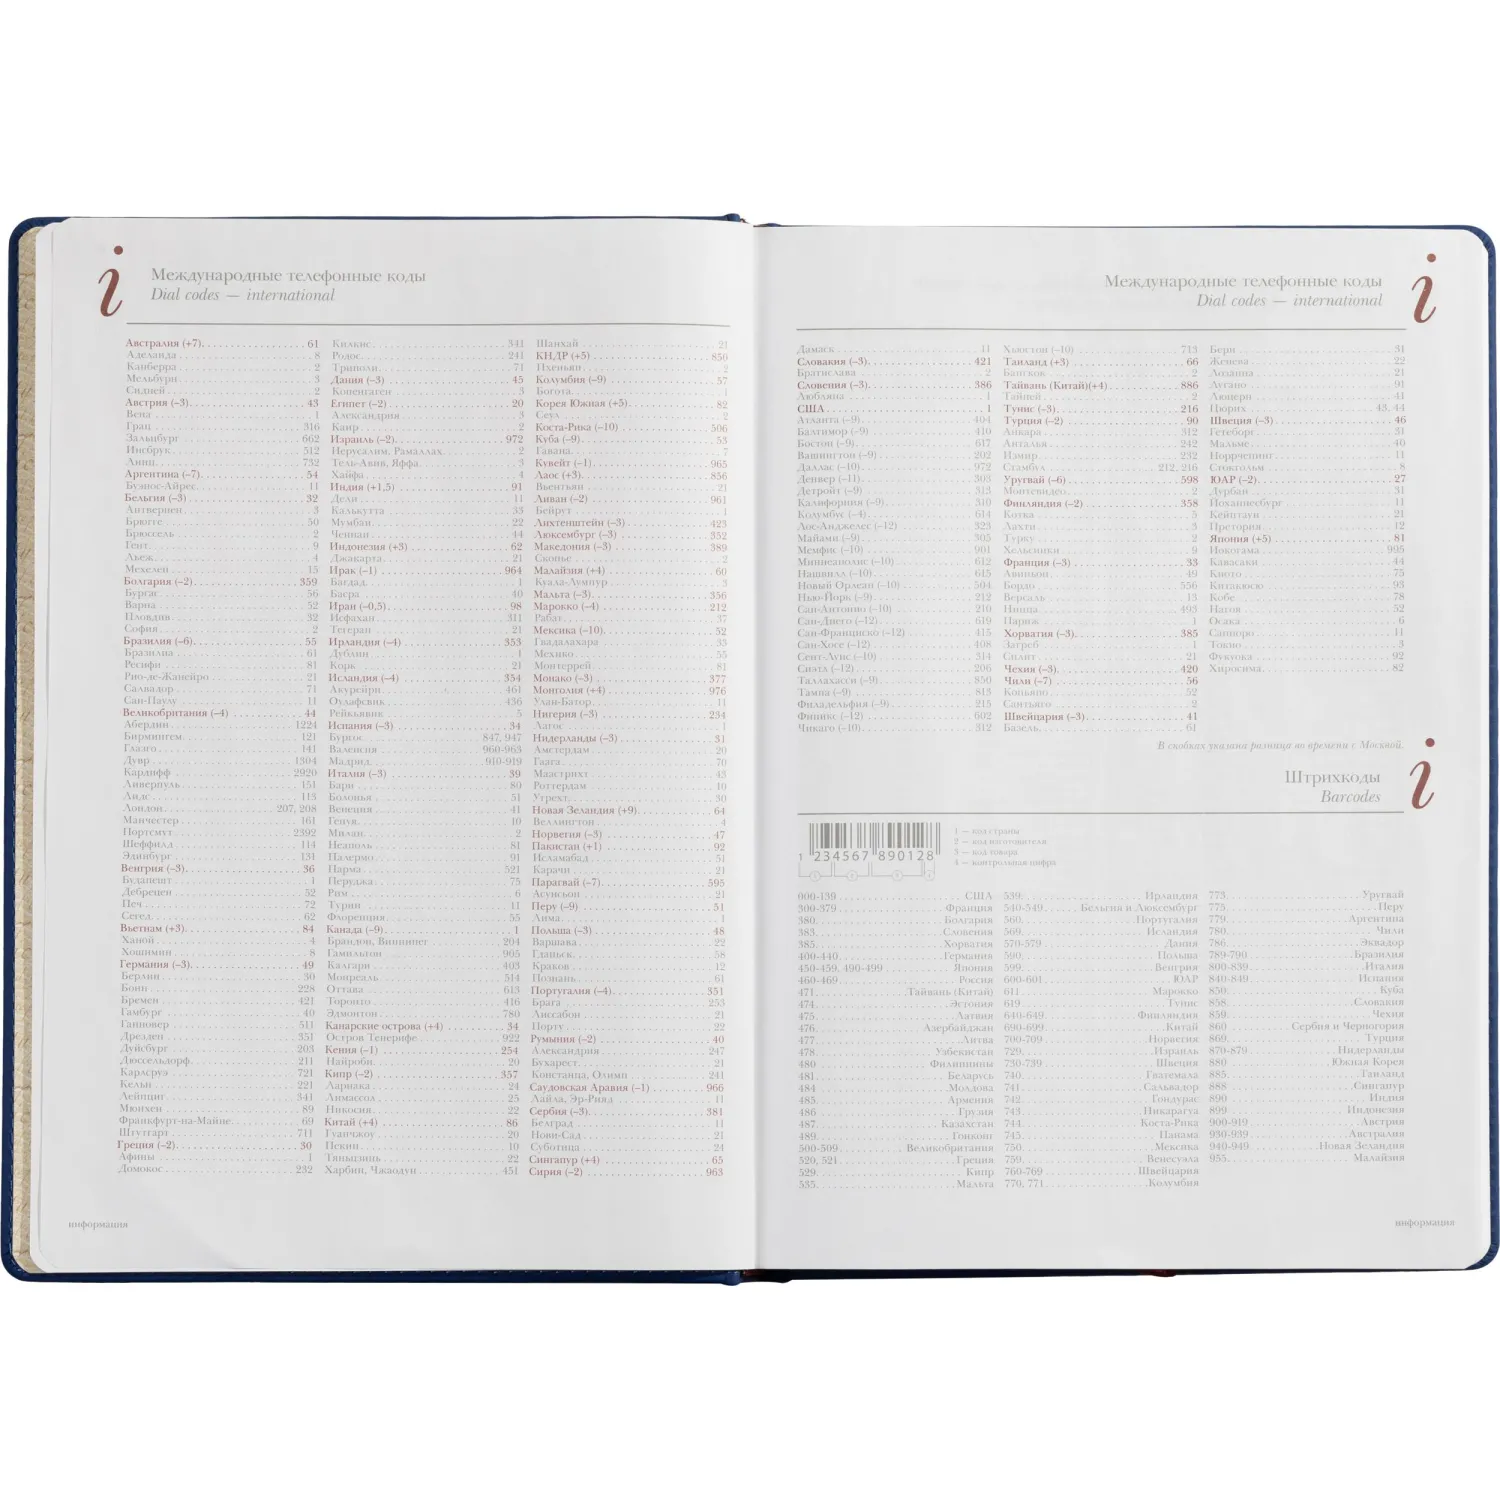 i
Международные телефонные коды
Dial codes — international
Австралия (+7) 61
Аделаида 8
Канберра 2
Мельбурн 3
Сидней 2
Австрия (–3) 43
Вена 1
Грац 316
Зальцбург 662
Инсбрук 512
Линц 732
Аргентина (–7) 54
Буэнос-Айрес 11
Бельгия (–3) 32
Антверпен 3
Брюгге 50
Брюссель 2
Гент 9
Льеж 4
Мехелен 15
Болгария (–2) 359
Бургас 56
Варна 52
Пловдив 32
София 2
Бразилия (–6) 55
Бразилиа 61
Ресифи 81
Рио-де-Жанейро 21
Салвадор 71
Сан-Паулу 11
Великобритания (–4) 44
Абердин 1224
Бирмингем 121
Глазго 141
Дувр 1304
Кардифф 2920
Ливерпуль 151
Лидс 113
Лондон 207, 208
Манчестер 161
Портсмут 2392
Шеффилд 114
Эдинбург 131
Венгрия (–3) 36
Будапешт 1
Дебрецен 52
Печ 72
Сегед 62
Вьетнам (+3) 84
Ханой 4
Хошимин 8
Германия (–3) 49
Берлин 30
Бонн 228
Бремен 421
Гамбург 40
Ганновер 511
Дрезден 351
Дуйсбург 203
Дюссельдорф 211
Карлсруэ 721
Кельн 221
Лейпциг 341
Мюнхен 89
Франкфурт-на-Майне 69
Штутгарт 711
Греция (–2) 30
Афины 1
Домокос 232
Килкис 341
Родос 241
Триполи 71
Дания (–3) 45
Копенгаген 3
Египет (–2) 20
Александрия 3
Каир 2
Израиль (–2) 972
Иерусалим, Рамаллах 2
Тель-Авив, Яффа 3
Хайфа 4
Индия (+1,5) 91
Дели 11
Калькутта 33
Мумбаи 22
Ченнаи 44
Индонезия (+3) 62
Джакарта 21
Ирак (–1) 964
Багдад 1
Басра 40
Иран (–0,5) 98
Исфахан 311
Тегеран 21
Ирландия (–4) 353
Дублин 1
Корк 21
Исландия (–4) 354
Акурейри 461
Оулафсвик 436
Рейкьявик 5
Испания (–3) 34
Бургос 847, 947
Валенсия 960-963
Мадрид 910-919
Италия (–3) 39
Бари 80
Болонья 51
Венеция 41
Генуя 10
Милан 2
Неаполь 81
Палермо 91
Парма 521
Перуджа 75
Рим 6
Турин 11
Флоренция 55
Канада (–9) 1
Брандон, Виннипег 204
Гамильтон 905
Калгари 403
Монреаль 514
Оттава 613
Торонто 416
Эдмонтон 780
Канарские острова (+4) 34
Остров Тенерифе 922
Кения (–1) 254
Найроби 20
Кипр (–2) 357
Ларнака 24
Лимассол 25
Никосия 22
Китай (+4) 86
Гуанчжоу 20
Пекин 10
Тяньцзинь 22
Харбин, Чжаодун 451
Шанхай 21
КНДР (+5) 850
Пхеньян 2
Колумбия (–9) 57
Богота 1
Корея Южная (+5) 82
Сеул 2
Коста-Рика (–10) 506
Куба (–9) 53
Гавана 7
Кувейт (–1) 965
Лаос (+3) 856
Вьентьян 21
Ливан (–2) 961
Бейрут 1
Лихтенштейн (–3) 423
Люксембург (–3) 352
Македония (–3) 389
Скопье 2
Малайзия (+4) 60
Куала-Лумпур 3
Мальта (–3) 356
Марокко (–4) 212
Рабат 37
Мексика (–10) 52
Гвадалахара 33
Мехико 55
Монтеррей 81
Монако (–3) 377
Монголия (+4) 976
Улан-Батор 11
Нигерия (–3) 234
Лагос 1
Нидерланды (–3) 31
Амстердам 20
Гаага 70
Маастрихт 43
Роттердам 10
Утрехт 30
Новая Зеландия (+9) 64
Веллингтон 4
Норвегия (–3) 47
Пакистан (+1) 92
Исламабад 51
Карачи 21
Парагвай (–7) 595
Асунсьон 21
Перу (–9) 51
Лима 1
Польша (–3) 48
Варшава 22
Гданьск 58
Краков 12
Познань 61
Португалия (–4) 351
Брага 253
Лиссабон 21
Порту 22
Румыния (–2) 40
Александрия 247
Бухарест 21
Констанца, Олимп 241
Саудовская Аравия (–1) 966
Лайла, Эр-Рияд 11
Сербия (–3) 381
Белград 11
Нови-Сад 21
Суботица 24
Сингапур (+4) 65
Сирия (–2) 963
информация
Международные телефонные коды
Dial codes — international
i
Дамаск 11
Словакия (–3) 421
Братислава 2
Словения (–3) 386
Любляна 1
США 1
Атланта (–9) 404
Балтимор (–9) 410
Бостон (–9) 617
Вашингтон (–9) 202
Даллас (–10) 972
Денвер (–11) 303
Детройт (–9) 313
Калифорния (–9) 310
Колумбус (–4) 614
Лос-Анджелес (–12) 323
Майами (–9) 305
Мемфис (–10) 901
Миннеаполис (–10) 612
Нашвилл (–10) 615
Новый Орлеан (–10) 504
Нью-Йорк (–9) 212
Сан-Антонио (–10) 210
Сан-Диего (–12) 619
Сан-Франциско (–12) 415
Сан-Хосе (–12) 408
Сент-Луис (–10) 314
Сиэтл (–12) 206
Таллахасси (–9) 850
Тампа (–9) 813
Филадельфия (–9) 215
Финикс (–12) 602
Чикаго (–10) 312
Хьюстон (–10) 713
Таиланд (+3) 66
Бангкок 2
Тайвань (Китай)(+4) 886
Тайпей 2
Тунис (–3) 216
Турция (–2) 90
Анкара 312
Анталья 242
Измир 232
Стамбул 212, 216
Уругвай (–6) 598
Монтевидео 2
Финляндия (–2) 358
Котка 5
Лахти 3
Турку 2
Хельсинки 9
Франция (–3) 33
Авиньон 49
Бордо 556
Версаль 13
Ницца 493
Париж 1
Хорватия (–3) 385
Загреб 1
Сплит 21
Чехия (–3) 420
Чили (–7) 56
Копьяпо 52
Сантьяго 2
Швейцария (–3) 41
Базель 61
Берн 31
Женева 22
Лозанна 21
Лугано 91
Люцерн 41
Цюрих 43, 44
Швеция (–3) 46
Гетеборг 31
Мальме 40
Норрчепинг 11
Стокгольм 8
ЮАР (–2) 27
Дурбан 31
Йоханнесбург 11
Кейптаун 21
Претория 12
Япония (+5) 81
Иокогама 995
Кавасаки 44
Киото 75
Китакюсю 93
Кобе 78
Нагоя 52
Осака 6
Саппоро 11
Токио 3
Фукуока 92
Хиросима 82
В скобках указана разница во времени с Москвой.
Штрихкоды
Barcodes
i
1 234567 890128
1 — код страны
2 — код изготовителя
3 — код товара
4 — контрольная цифра
000-139 США
300-379 Франция
380 Болгария
383 Словения
385 Хорватия
400-440 Германия
450-459, 490-499 Япония
460-469 Россия
471 Тайвань (Китай)
474 Эстония
475 Латвия
476 Азербайджан
477 Литва
478 Узбекистан
480 Филиппины
481 Беларусь
484 Молдова
485 Армения
486 Грузия
487 Казахстан
489 Гонконг
500-509 Великобритания
520, 521 Греция
529 Кипр
535 Мальта
539 Ирландия
540-549 Бельгия и Люксембург
560 Португалия
569 Исландия
570-579 Дания
590 Польша
599 Венгрия
600-601 ЮАР
611 Марокко
619 Тунис
640-649 Финляндия
690-699 Китай
700-709 Норвегия
729 Израиль
730-739 Швеция
740 Гватемала
741 Сальвадор
742 Гондурас
743 Никарагуа
744 Коста-Рика
745 Панама
750 Мексика
759 Венесуэла
760-769 Швейцария
770, 771 Колумбия
773 Уругвай
775 Перу
779 Аргентина
780 Чили
786 Эквадор
789-790 Бразилия
800-839 Италия
840-849 Испания
850 Куба
858 Словакия
859 Чехия
860 Сербия и Черногория
869 Турция
870-879 Нидерланды
880 Южная Корея
885 Таиланд
888 Сингапур
890 Индия
899 Индонезия
900-919 Австрия
930-939 Австралия
940-949 Новая Зеландия
955 Малайзия
информация